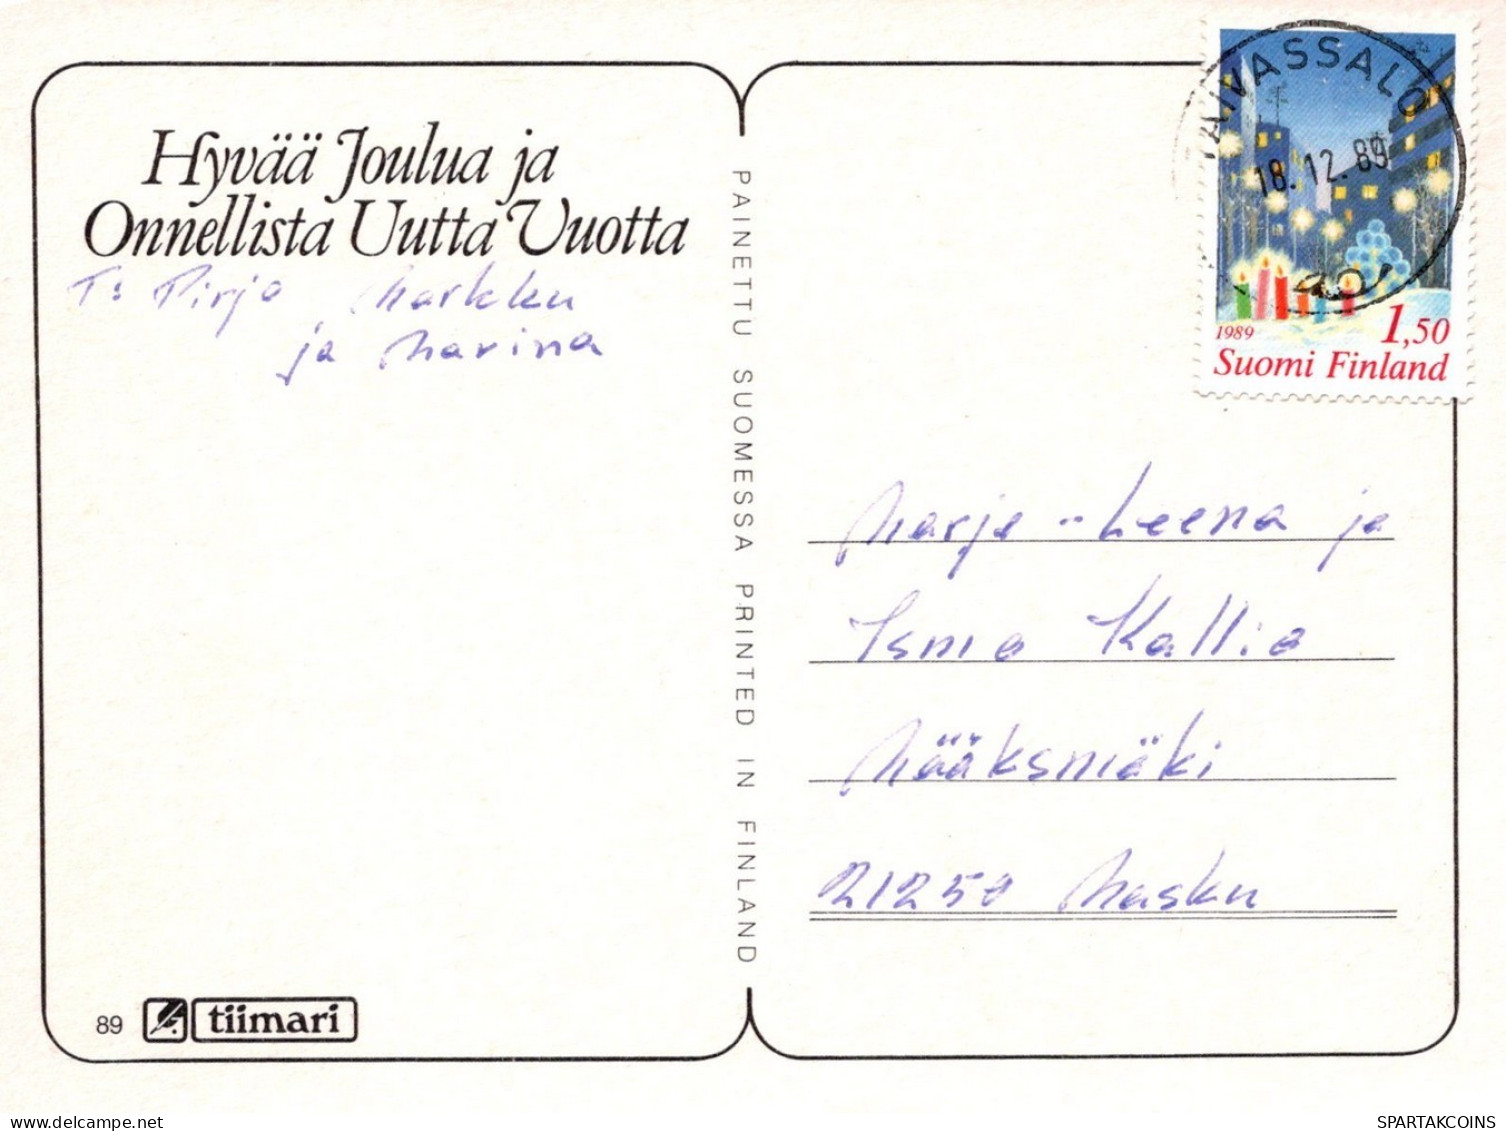 Hyvää Joulua ja
Onnellista Uutta Vuotta
T: Pirjo, Markku
ja Marina
PAINETTU SUOMESSA PRINTED IN FINLAND
89 tiimari
AIVASSALO
18.12.89
1989 1,50
Suomi Finland
Marja-Leena ja
Ismo Kallio
Määksmäki
21250 Masku
akpool.co.uk
SPARTAKCOINS